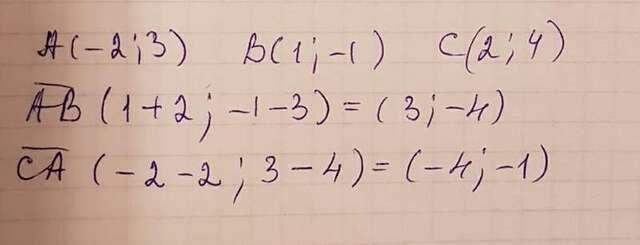 A(-2;3) B(1;-1) C(2;4)
A̅B̅ (1+2; -1-3) = (3;-4)
C̅A̅ (-2-2; 3-4) = (-4;-1)